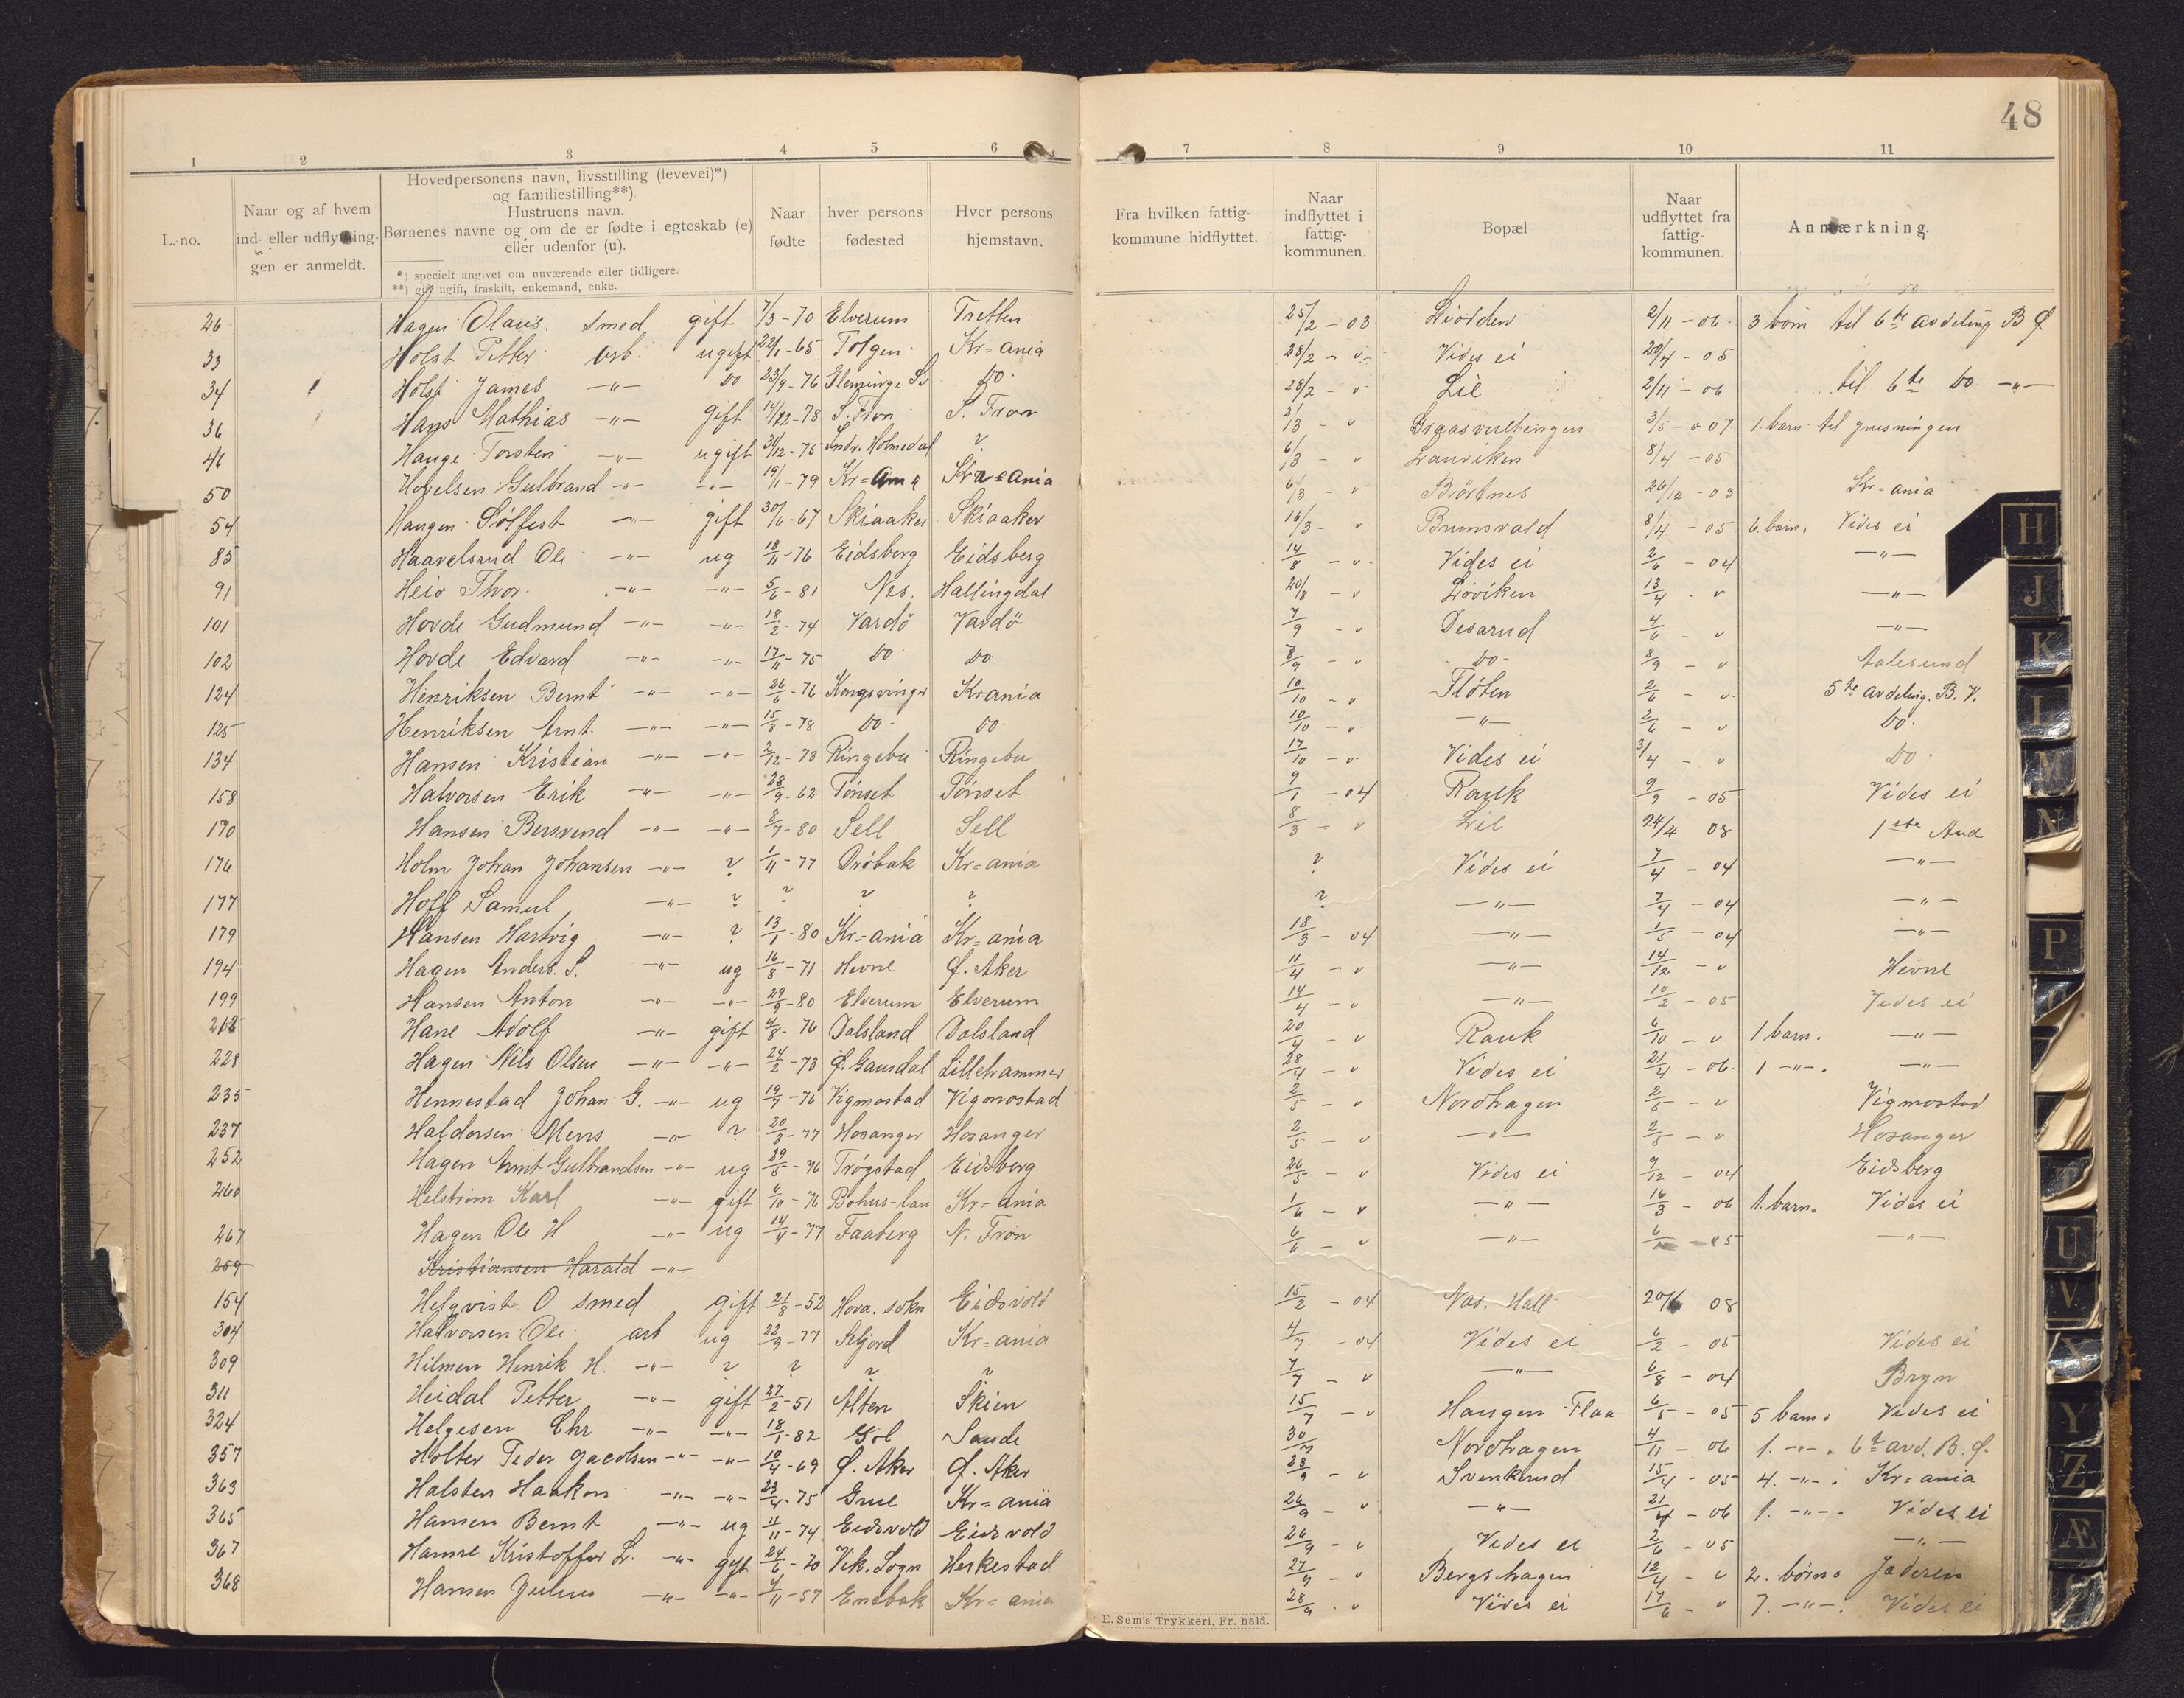 48
1 2 3 4 5 6 7 8 9 10 11
L.-no.
Naar og af hvem ind- eller udflytning- gen er anmeldt.
Hovedpersonens navn, livsstilling (levevei)*) og familiestilling**).
Hustruens navn.
Børnenes navne og om de er fødte i egteskab (e) eller udenfor (u).
*) specielt angivet om nuværende eller tidligere.
**) gift ugift, fraskilt, enkemand, enke.
Naar fødte
hver persons fødested
Hver persons hjemstavn.
Fra hvilken fattig- kommune hidflyttet.
Naar indflyttet i fattig- kommunen.
Bopæl
Naar udflyttet fra fattig- kommunen.
Anmærkning.
26 Hagen Olaus. smed gift 7/3-70 Elverum Tretten 25/2-03 Liodden 2/11-06 3 børn til 6te avdeling B Ø
33 Holst Petter arb. ugift 22/1-65 Tolgen Kr=ania 28/2 - v Vides ei 20/4-05
34 Holst James -"- Do 23/9-76 Do 28/2 - v Lil 2/11-06 til 6te Do -"-
36 Hans Mathias -"- gift 14/12-78 S. Fron S. Fron 2/3 - v 3/5-07 1. barn til grusningen
46 Hauge Torsten -"- ugift 31/12-75 Indv. Holmedal ? 6/3 - v Lauviken 8/4-05
50 Hovelsen Gulbrand -"- -"- 19/1-79 Kr=ania Kr=ania 6/3 - v Børtnes 26/12-03 Kr=ania
54 Haugen Sølfest -"- gift 30/6-67 Skiaaker Skiaaker 16/3 - v Brunsvald 8/4-05 6. barn. Vides ei
85 Haavelsrud Ole -"- ug 18/11-76 Eidsberg Eidsberg 14/8 - v Vides ei 2/6-04 -"-
91 Heio Thor -"- -"- 5/6-81 Nes. Hallingdal 20/8 - v Loviken 13/4 - v -"-
101 Hovde Gudmund -"- -"- 18/2-74 Vardö Vardö 7/9 - v Desarud 4/6 - v -"-
102 Hovde Edvard -"- -"- 17/11-75 Do Do 8/9 - v Do 8/9 - v Aalesund
124 Henriksen Bernt -"- -"- 26/6-76 Kongsvinger Krania 10/10 - v Fløten 2/6 - v 5te avdeling. B. V.
125 Henriksen Arnt. -"- -"- 15/8-78 Do Do 10/10 - v -"- 2/6 - v Do.
134 Hansen Kristian -"- -"- 2/12-73 Ringebu Ringebu 17/10 - v Vides ei 3/4 - v Do.
158 Halvorsen Erik -"- -"- 28/9-62 Tønset Tønset 9/1-04 Rauk 9/9-05 Vides ei
170 Hansen Bersvend -"- -"- 8/7-80 Sell Sell 8/3 - v Lil 24/4 08 1ste Avd
176 Holm Johan Johansen -"- ? 1/11-77 Drøbak Kr=ania ? Vides ei 7/4-04 -"-
177 Hoff Samuel -"- ? ? ? ? ? -"- 7/4-04 -"-
179 Hansen Hartvig -"- ? 13/1-80 Kr=ania Kr=ania 18/3-04 -"- 1/5-04 -"-
194 Hagen Anders. S. -"- ug 16/8-71 Hevne Ø. Aker 11/4 - v -"- 14/12 - v Hevne
199 Hansen Anton -"- -"- 29/9-80 Elverum Elverum 14/4 - v -"- 10/2-05 Vides ei
218 Hane Adolf -"- gift 4/8-76 Dalsland Dalsland 20/4 - v Rauk 6/10 - v 1 barn. -"-
228 Hagen Nils Olsen -"- -"- 24/2-73 Ø. Gausdal Lillehammer 28/4 - v Vides ei 21/4-06 1 -"-. -"-
235 Hennestad Johan G. -"- ug 19/7-76 Vigmostad Vigmostad 2/5 - v Nordhagen 2/5 - v Vigmostad
237 Haldorsen Mens -"- ? 20/3-77 Hosanger Hosanger 2/5 - v -"- 2/5 - v Hosanger
252 Hagen Arnt Gulbrandsen -"- ug 29/5-76 Trøgstad Eidsberg 26/5 - v Vides ei 9/12-04 Eidsberg
260 Helstrøm Karl -"- gift 6/10-76 Bohus-lan Kr=ania 1/6 - v -"- 16/3-06 1. barn. Vides ei
267 Hagen Ole H -"- ug 14/4-77 Faaberg N. Fron 6/6 - v -"- -05 -"-
259 Kristiansen Harald -"-
154 Helqvist O smed gift 21/8-52 Hova. sokn Eidsvold 15/2-04 Nas. Hall 20/6 08
304 Halvorsen Ole arb ug 22/9-77 Seljord Kr=ania 4/7-04 Vides ei 6/2-05 Vides ei
309 Hilmen Henrik H. -"- ? ? ? ? 7/7 - v -"- 6/8-04 Bryn
311 Heidal Petter -"- gift 27/2-51 Alten Skien 15/7 - v Haugen Flaa 6/5-05 5 barn. Vides ei
324 Helgesen Chr -"- -"- 18/1-82 Gol Sande 30/7 Nordhagen 4/11-06 1. -"-. 6te avd. B. Ø.
357 Holter Peder Jacobsen -"- -"- 10/4-69 Ø. Aker Ø. Aker 23/9 - v Svenkrud 15/4-05 4. -"-. Kr=ania
363 Halsten Haakon -"- -"- 23/4-75 Grue Kr=ania 26/9 - v -"- 21/4-06 1. -"-. Vides ei
365 Hansen Bernt -"- ug 11/11-74 Eidsvold Eidsvold 26/9 - v Vides ei 2/6-05 -"-
367 Hamre Kristoffer L. -"- gift 24/6-70 Vik. Sogn Heskestad 27/9 - v Bergshagen 12/4 - v 2. børn. Jæderen
368 Hansen Julius -"- -"- 4/11-57 Enebak Kr=ania 28/9 - v Vides ei 17/6 - v 7. -"-. Vides ei
E. Sem's Trykkeri, Fr. hald.
H
J
K
L
M
N
P
U
V
X
Y
Z
Æ